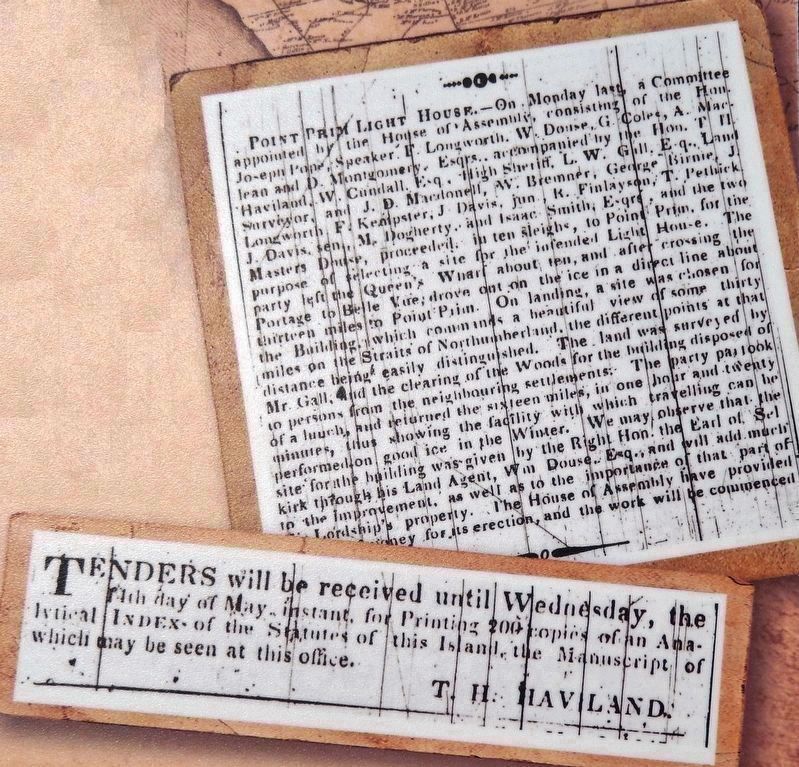 POINT PRIM LIGHT HOUSE.—On Monday last, a Committee
appointed by the House of Assembly, consisting of the Hon.
Joseph Pope, Speaker, F. Longworth, W. Douse, G. Coles, A. Mac-
lean and D. Montgomery, Esqrs. accompanied by the Hon. T. H.
Haviland, W. Cundall, Esq. High Sheriff, L. W. Gall, Esq. Land
Surveyor, and J. D. Macdonell, W. Bremner, George Birnie, J.
Longworth, F. Kempster, J. Davis, jun. R. Finlayson, T. Pethick,
J. Davis, sen. M. Dogherty, and Isaac Smith, Esqrs, and the two
Masters Douse, proceeded, in ten sleighs, to Point Prim, for the
purpose of selecting a site for the intended Light House. The
party left the Queen's Wharf about ten, and after crossing the
Portage to Belle Vue, drove out on the ice in a direct line about
thirteen miles to Point Prim. On landing, a site was chosen for
the Building, which commands a beautiful view of some thirty
miles on the Straits of Northumberland, the different points at that
distance being easily distinguished. The land was surveyed by
Mr. Gall, and the clearing of the Woods for the building disposed of
to persons from the neighbouring settlements. The party partook
of a lunch, and returned the sixteen miles, in one hour and twenty
minutes, thus showing the facility with which travelling can be
performed on good ice in the Winter. We may observe that the
site for the building was given by the Right Hon. the Earl of Sel
kirk through his Land Agent, Wm Douse, Esq., and will add much
to the improvement, as well as to the importance of that part of
Lordship's property. The House of Assembly have provided
for its erection, and the work will be commenced
TENDERS will be received until Wednesday, the
day of May instant, for Printing 200 copies of an Ana-
lytical INDEX of the Statutes of this Island, the Manuscript of
which may be seen at this office.
T. H. HAVILAND.